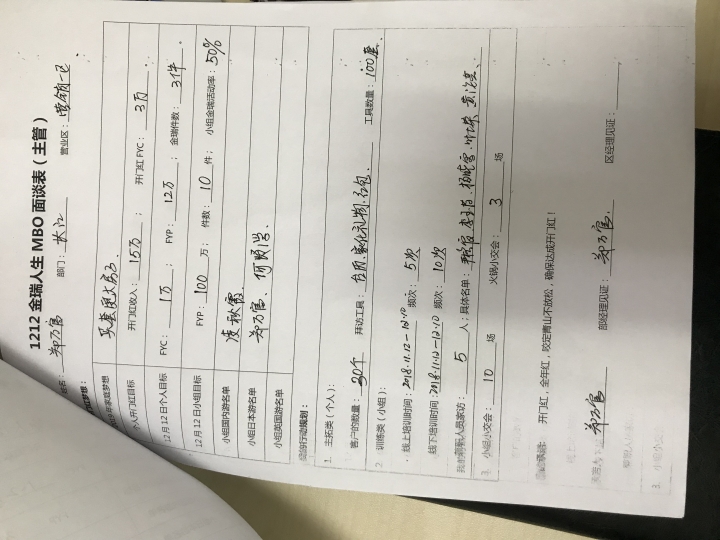 1212金瑞人生MBO面谈表（主管）
姓名：郑乃富 部门：长江 营业区：营销一区
梦想：
家庭梦想 买套更大房子、
个人开门红目标 开门红收入：15万； 开门红FYC：3万
12月12日个人目标 FYC：1万； FYP：12万； 金瑞件数：3件。
12月12日小组目标 FYP：100万； 件数：10件； 小组金瑞活动率：50%
小组国内游名单 凌秋霞、
小组日本游名单 郑乃富、何贤学、
小组英国游名单
行动规划：
1. 主拓类（个人）：
客户的数量：30个 拜访工具：台历、红包、 工具数量：100套、
2. 训练类（小组）：
线上培训时间：2018.11.12-12.10 频次：5次
线下培训时间：2018.11.12-12.10 频次：10次
人员家访：5人；具体名单：
3. 小组小交会：10场 火锅小交会：3场
开门红，全年红，咬定青山不放松，确保达成开门红！
郑乃富 部经理见证：郑乃富 区经理见证：
3. 小组小交